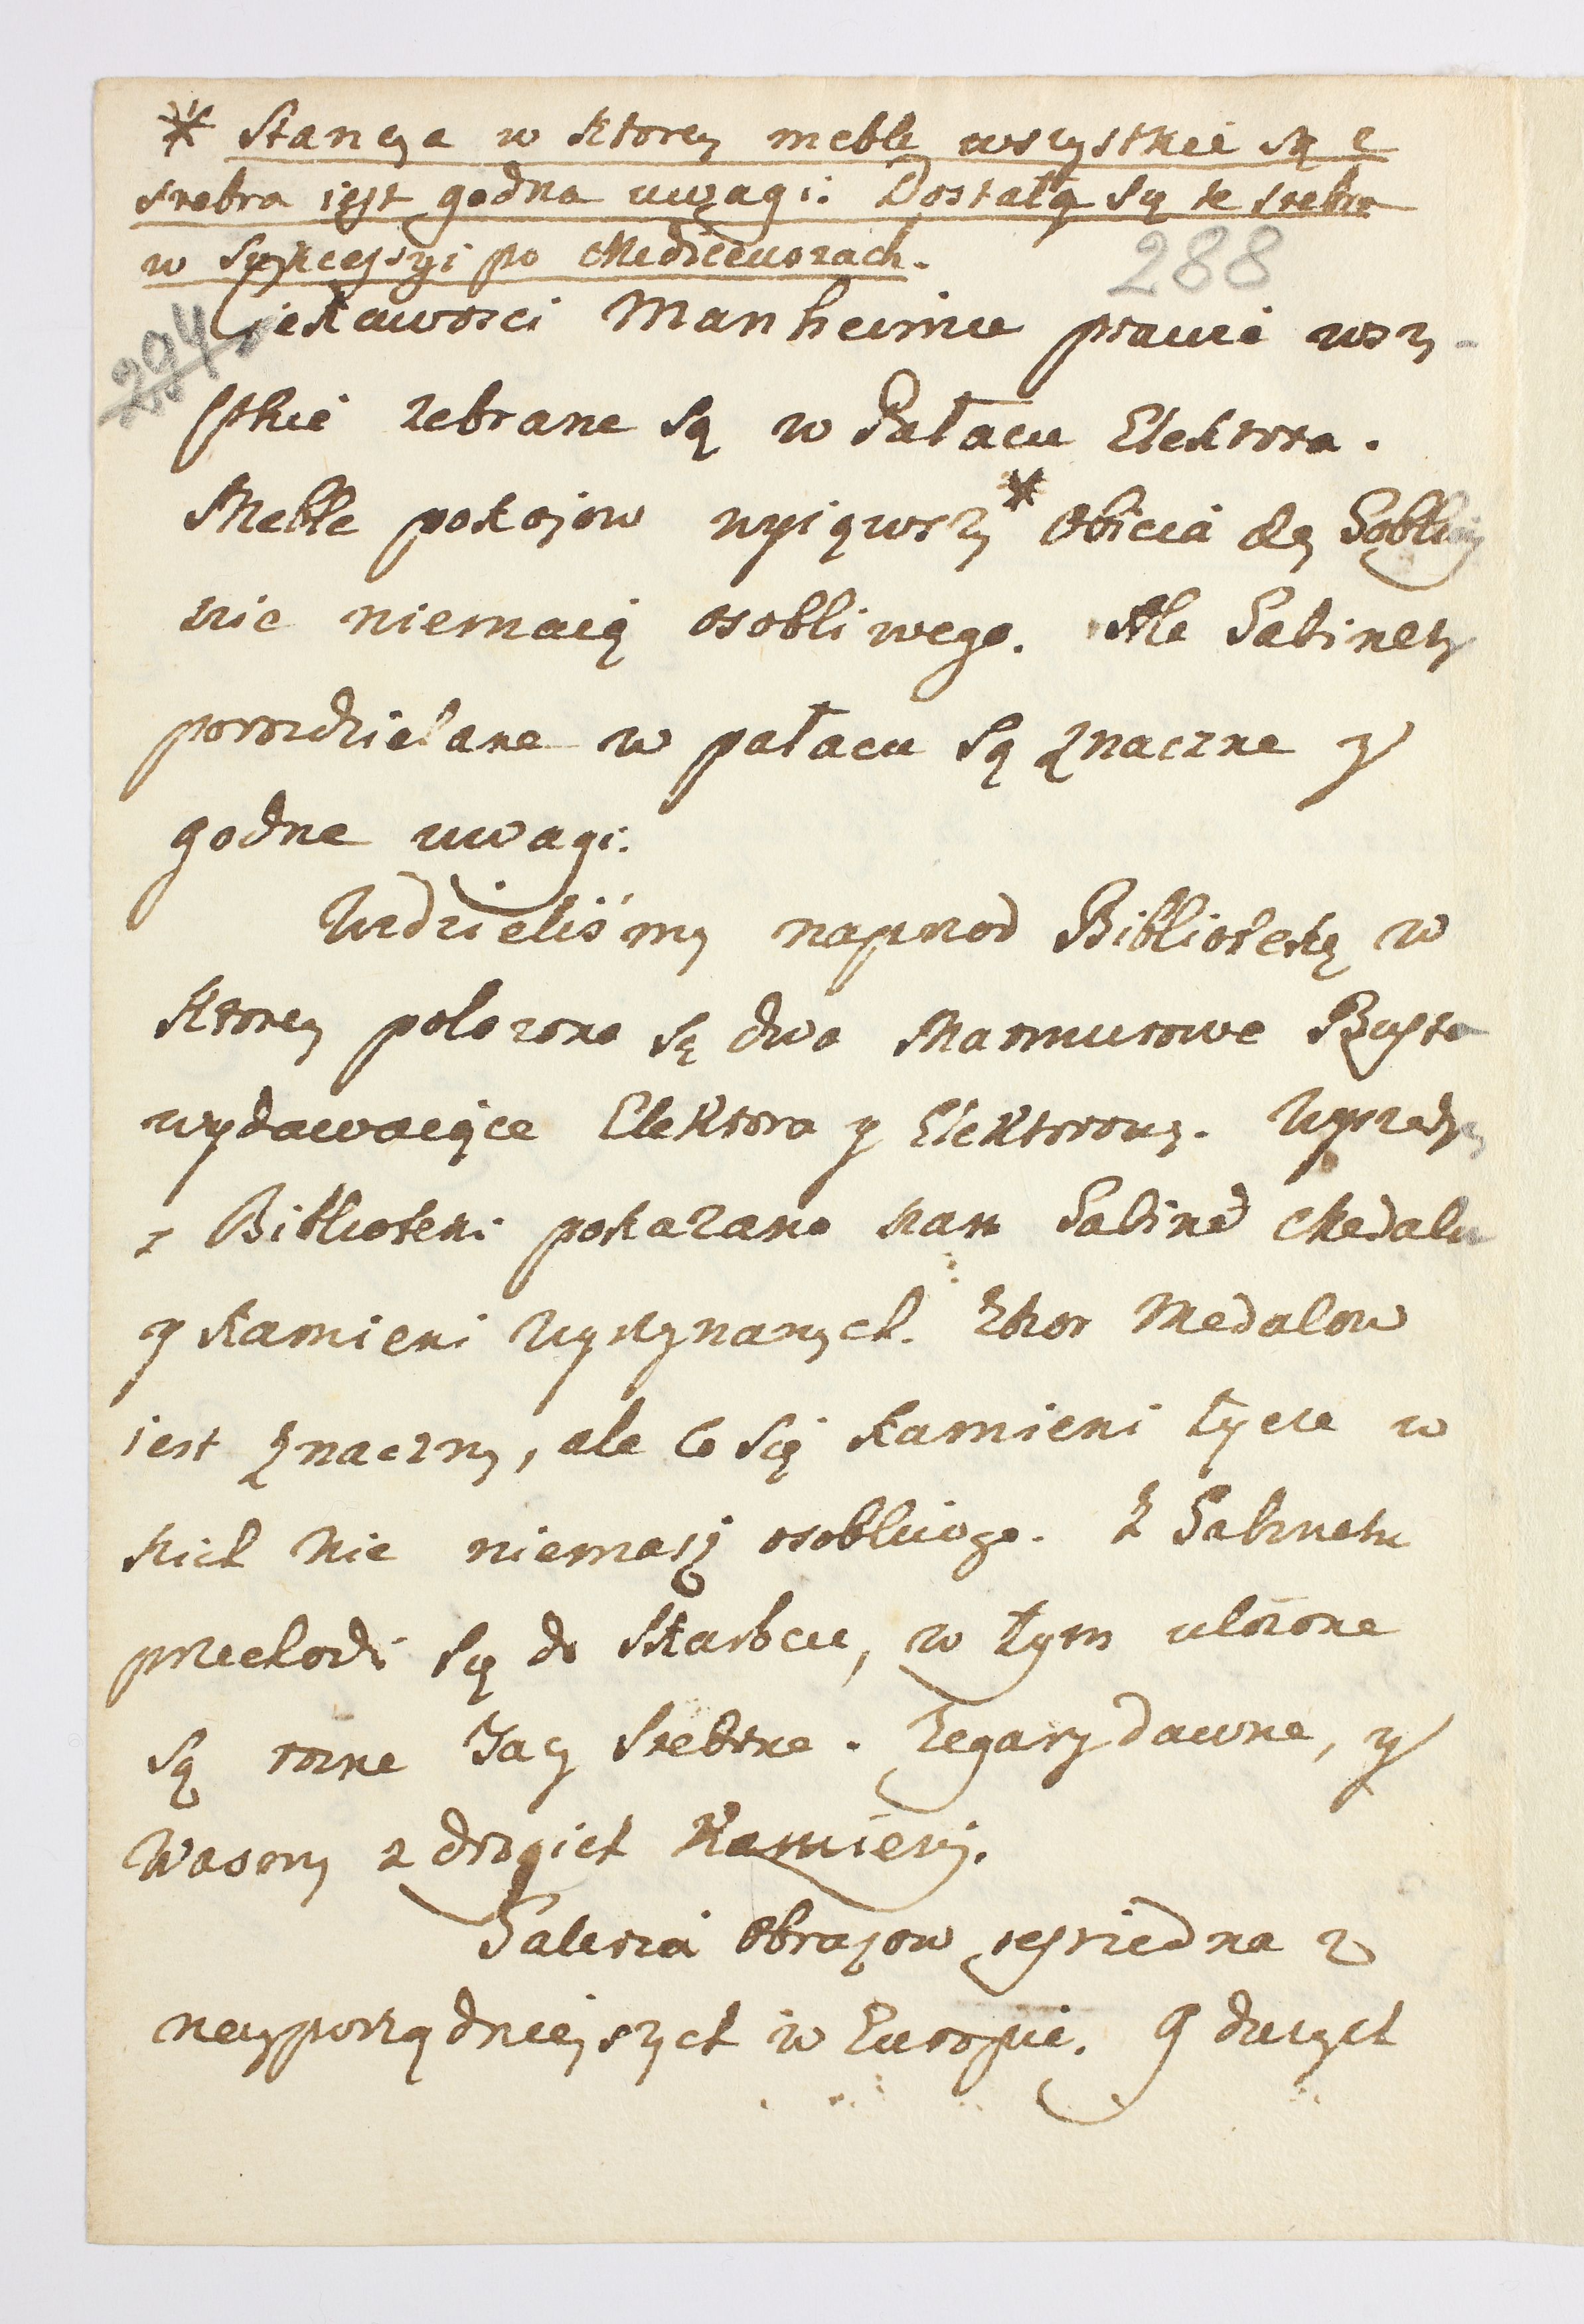 * Stancya w ktorey meble wszystkie są z
srebra iest godna uwagi. Dostały się te srebra
w Sukcessyi po Mediceuszach.
288
294
Ciekawosci Manheimu prawie wszy-
stkie zebrane są w Pałacu Elektora.
Meble pokojow wyiąwszy * Obicia de Goblin
nic niemaią osobliwego. Ale Gabinety
porozdzielane w pałacu są znaczne y
godne uwagi.
Widzieliśmy naprzod Bibliotekę w
ktorey polozone są dwa Marmurowe Busta
wydawaiące Elektora y Elektorową.
z Biblioteki pokazano nam Gabinet Medalu
y kamieni wyrzynanych. Zbior Medalow
iest znaczny, ale co się kamieni tycze w
nich nic niemasz osobliwego. Z Gabinetu
przechodzi się do Skarbcu, w tym ulożone
są rozne Tacy srebrne. Zegary dawne, y
Wazony z drogich Kamieni.
Galeria Obrazow iest iedna z
nayporządnieyszych w Europie. 9 duzych